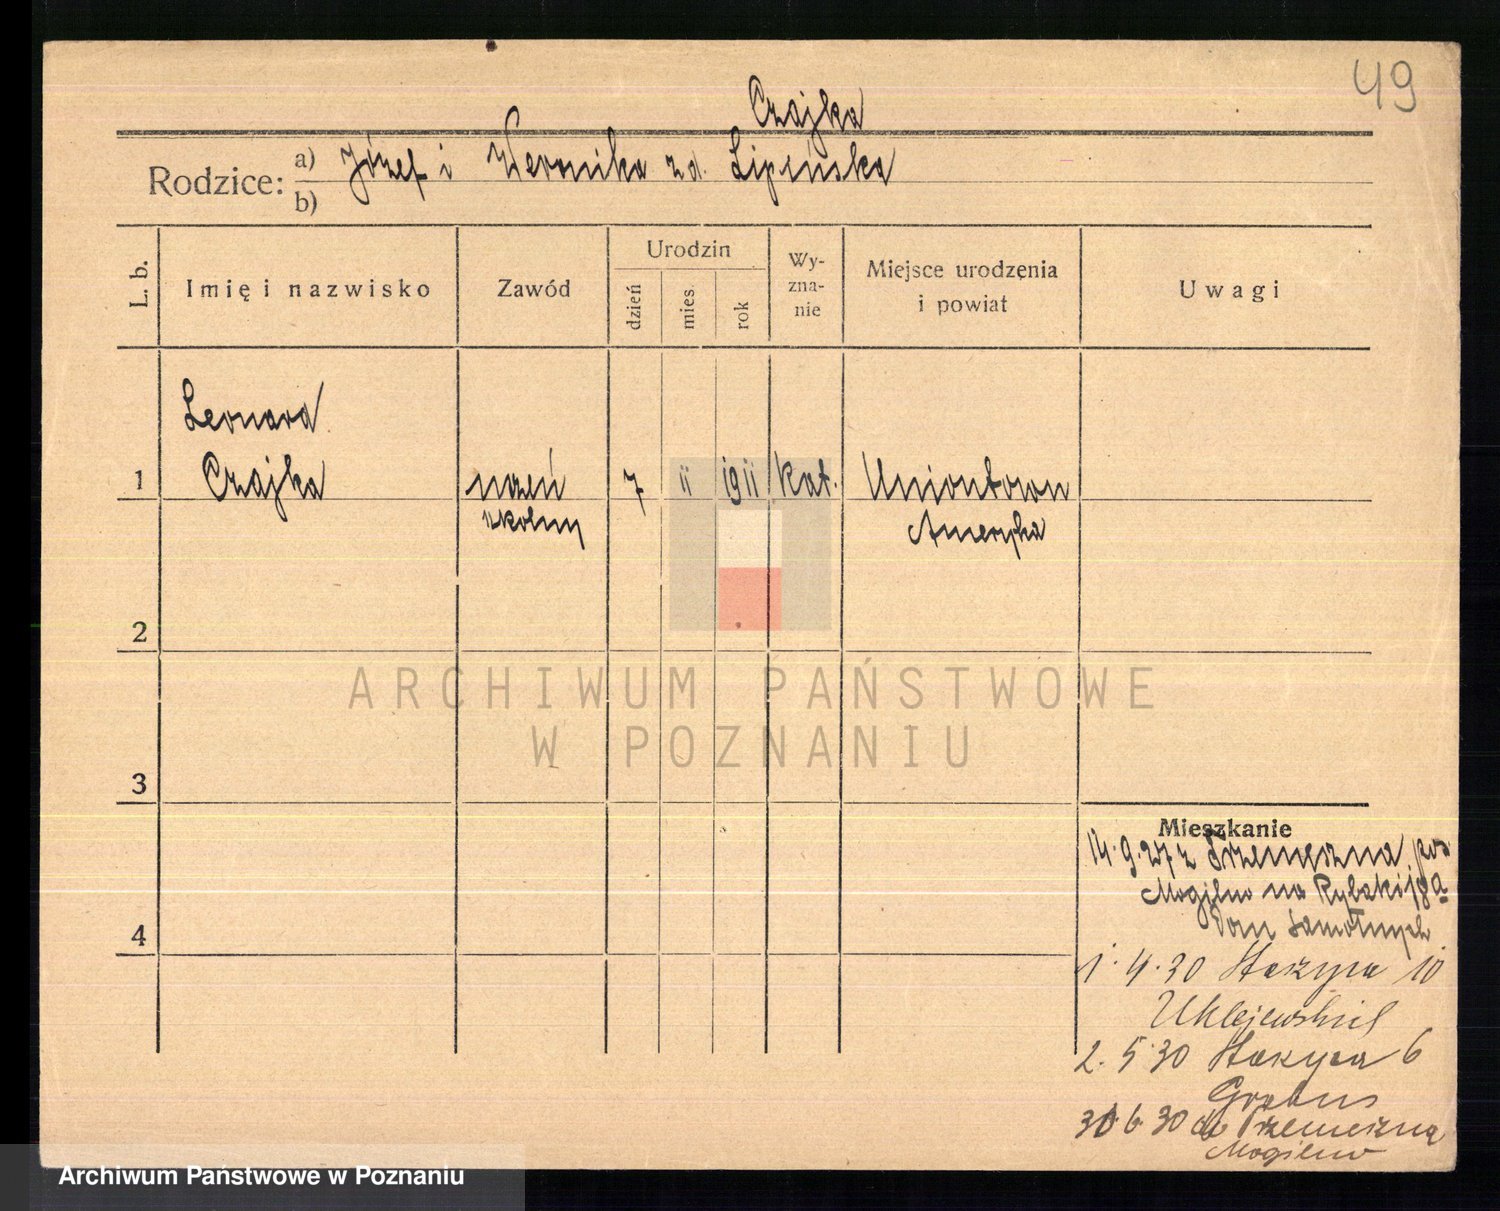 49
Czajka
Rodzice: a) Józef i Weronika zd. Lipińska
b)
L. b.
Imię i nazwisko
Zawód
Urodzin
dzień
mies.
rok
Wy-
zna-
nie
Miejsce urodzenia
i powiat
Uwagi
Leonard
1 Czajka uczeń 7 11 1911 kat. Uniontown
szkolny Ameryka
2
ARCHIWUM PAŃSTWOWE
W POZNANIU
3
Mieszkanie
14.9.27 z Trzemeszna, pow
Mogilno na Rybaki 18a
Dom Samotnych
4
1.4.30 Strzyża 10
2.5.30 6
Grabus
30.6.30 do Trzemeszna
Mogilno
Archiwum Państwowe w Poznaniu